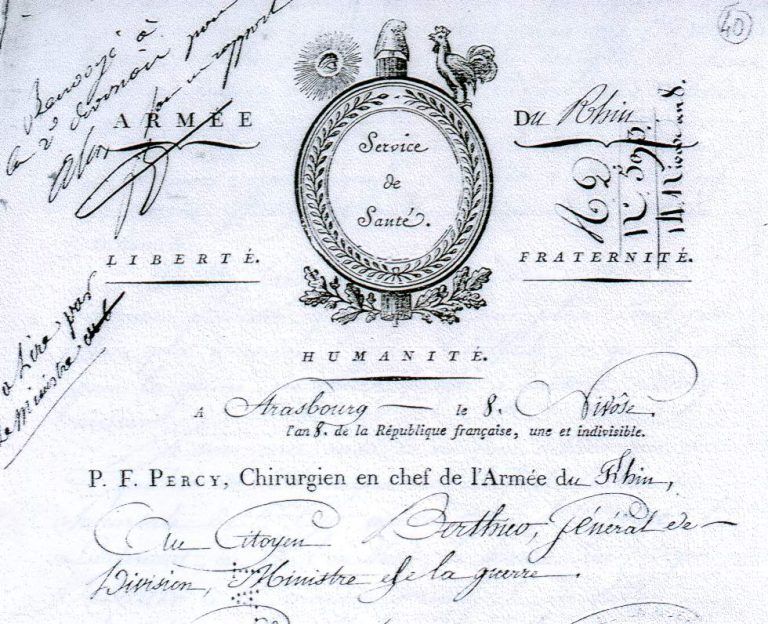 40
Renvoyé à
la 2e division pour
faire un rapport
ARMÉE DU Rhin
Service
de
Santé.
LIBERTÉ. FRATERNITÉ.
a Lire par
Le Ministre
HUMANITÉ.
A Strasbourg le 8. Nivôse
l'an 8. de la République française, une et indivisible.
P. F. PERCY, Chirurgien en chef de l'Armée du Rhin,
Au Citoyen Berthier, Général de
Division, Ministre de la guerre.